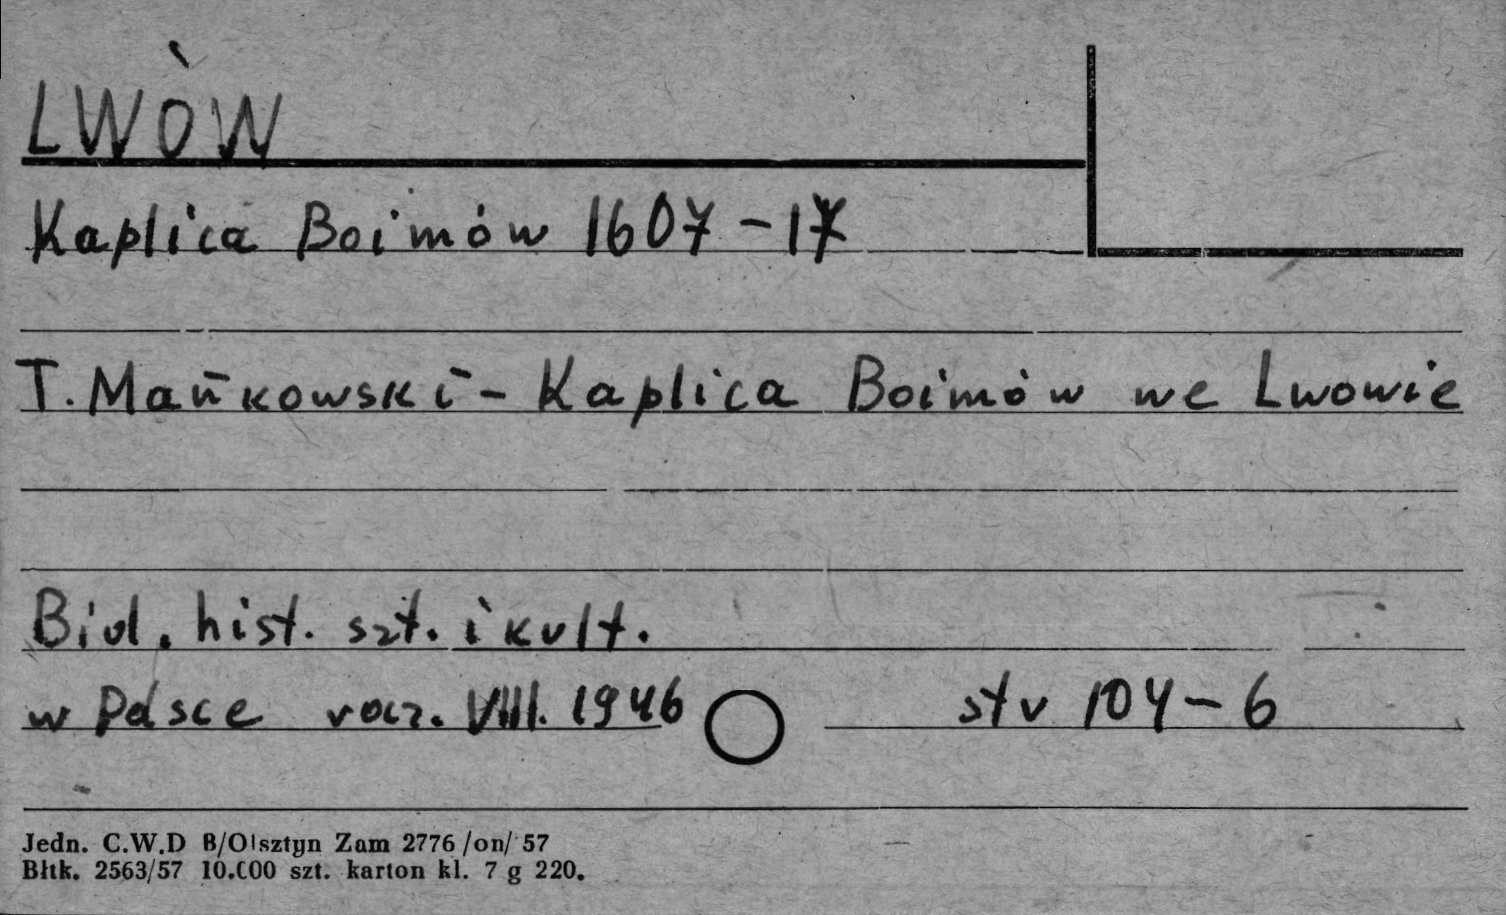 LWÓW
Kaplica Boimów 1607-17
T. Mańkowski - Kaplica Boimów we Lwowie
Biul. hist. szt. i kult.
w Polsce rocz. VIII. 1946 str 104-6
Jedn. C.W.D B/Olsztyn Zam 2776/on/57
Błtk. 2563/57 10.000 szt. karton kl. 7 g 220.